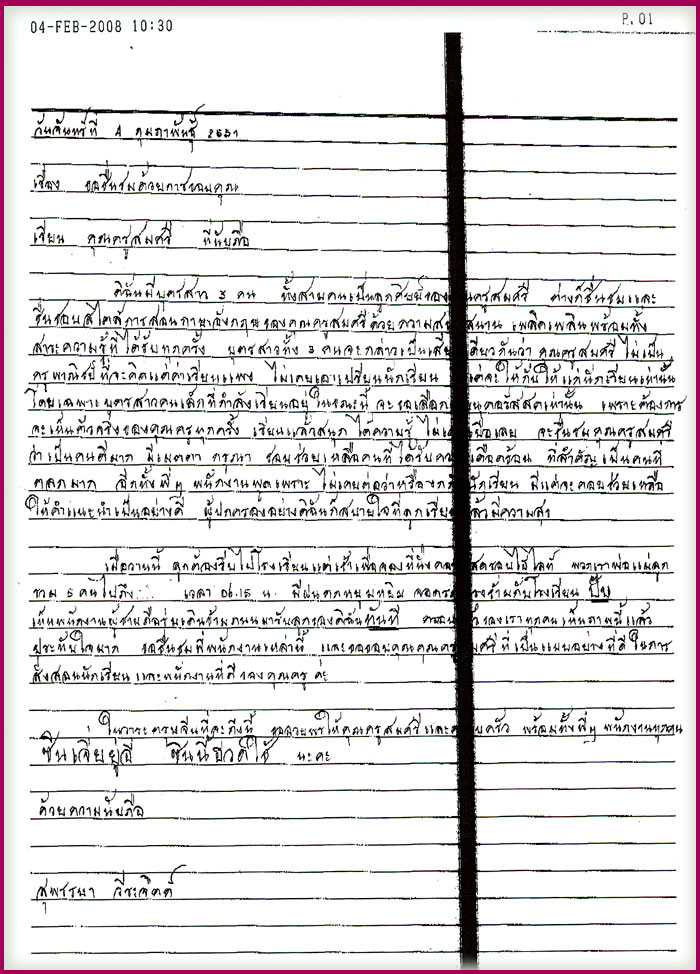 04-FEB-2008 10:30 P.01
วันจันทร์ที่ 4 กุมภาพันธุ์ 2551
เรื่อง ขอชื่นชมด้วยการขอบคุณ
เรียน คุณครูสมศรี ที่นับถือ
ดิฉันมีบุตรสาว 3 คน ทั้งสามคนเป็นลูกศิษย์ของ นครูสมศรี ต่างก็ชื่นชมและ
ชื่นชอบสไตล์การสอนภาษาอังกฤษของคุณครูสมศรีด้วยความส สนาน เพลิดเพลินพร้อมทั้ง
สาระความรู้ที่ได้รับทุกครั้ง บุตรสาวทั้ง 3 คนจะกล่าวเป็นเสี เดียวกันว่า คุณครูสมศรี ไม่เป็น
ครูพาณิชย์ที่จะคิดแต่ค่าเรียนแพง ไม่เคยเอาเปรียบนักเรียน แต่จะให้กับให้แก่นักเรียนเท่านั้น
โดยเฉพาะบุตรสาวคนเล็กที่กำลังเรียนอยู่ในขณะนี้ จะขอเลือก นคอร์สสดเท่านั้น เพราะต้องการ
จะเห็นตัวจริงของคุณครูทุกครั้ง เรียนแล้วสนุก ได้ความรู้ ไม่ เบื่อเลย จะชื่นชมคุณครูสมศรี
ว่าเป็นคนดีมาก มีเมตตา กรุณา ชอบช่วยเหลือคนที่ได้รับคว เดือดร้อน ที่สำคัญ เป็นคนที่
ตลกมาก อีกทั้งพี่ๆ พนักงานพูดเพราะ ไม่เคยต่อว่าหรือ นักเรียน มีแต่จะคอยช่วยเหลือ
ให้คำแนะนำเป็นอย่างดี ผู้ปกครองอย่างดิฉันก็สบายใจที่ลูกเรีย ล้วมีความสุข
เมื่อวานนี้ ลูกต้องรีบไปโรงเรียนแต่เช้าเพื่อจองที่นั่งคอ สดรอบไฮไลท์ พวกเราพ่อแม่ลูก
รวม 5 คนไปถึง เวลา 06.15 น. มีฝนตกหยุมหยิม จอดรถ รงข้ามกับโรงเรียน ปั๊บ
เห็นพนักงานผู้ชายถือร่มเดินข้ามถนนมารับลูกของดิฉันทันที ครอบ วของเราทุกคนเห็นภาพนี้แล้ว
ประทับใจมาก ขอชื่นชมพี่พนักงานเหล่านี้ และขอขอบคุณคุณค มศรีที่เป็นแบบอย่างที่ดีในการ
สั่งสอนนักเรียนและพนักงานที่ดีของคุณครู ค่ะ
ในวาระตรุษจีนที่จะถึงนี้ ขออวยพรให้คุณครูสมศรีและค บครัว พร้อมทั้งพี่ๆ พนักงานทุกคน
ซินเจียยู่อี่ ซินนี้ฮวดใช้ นะคะ
ด้วยความนับถือ
สุพรรษา วีระจิตต์